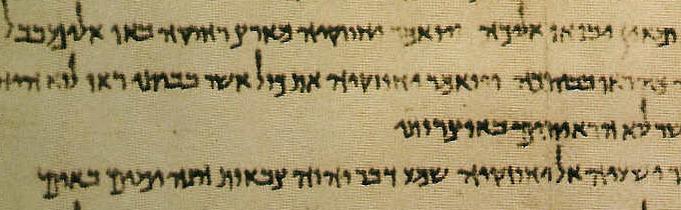 אליכה ויואמר יחזקיה מארץ רחוקה באו אלי מבבל
ראו בביתכה ויואמר יחזקיה את כול אשר בביתי ראו לוא
לא הראיתים באוצרותי
ישעיה אל יחזקיה שמע דבר יהוה צבאות הנה ימים באים